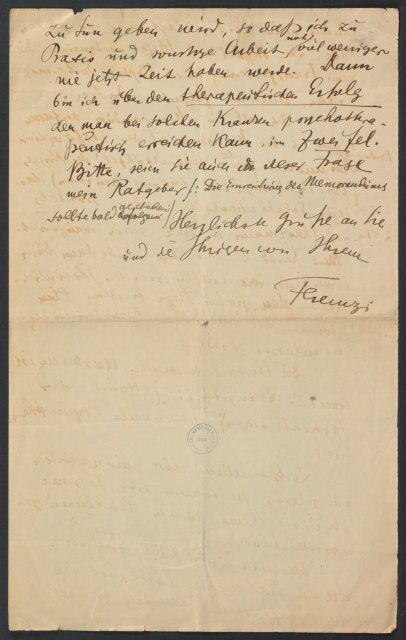 zu tun geben wird, so daß ich zu
Praxis und sonstige Arbeit noch viel weniger
wie jetzt Zeit haben werde. Dann
bin ich über den therapeutischen Erfolg
den man bei solchen Kranken psychothera-
peutisch erreichen kann, im Zweifel.
Bitte, seien Sie auch in dieser Frage
mein Ratgeber! Die Einreichung des Memorandums
sollte bald geschehen!
Herzlichste Grüße an Sie
und die Ihrigen von Ihrem
Ferenczi